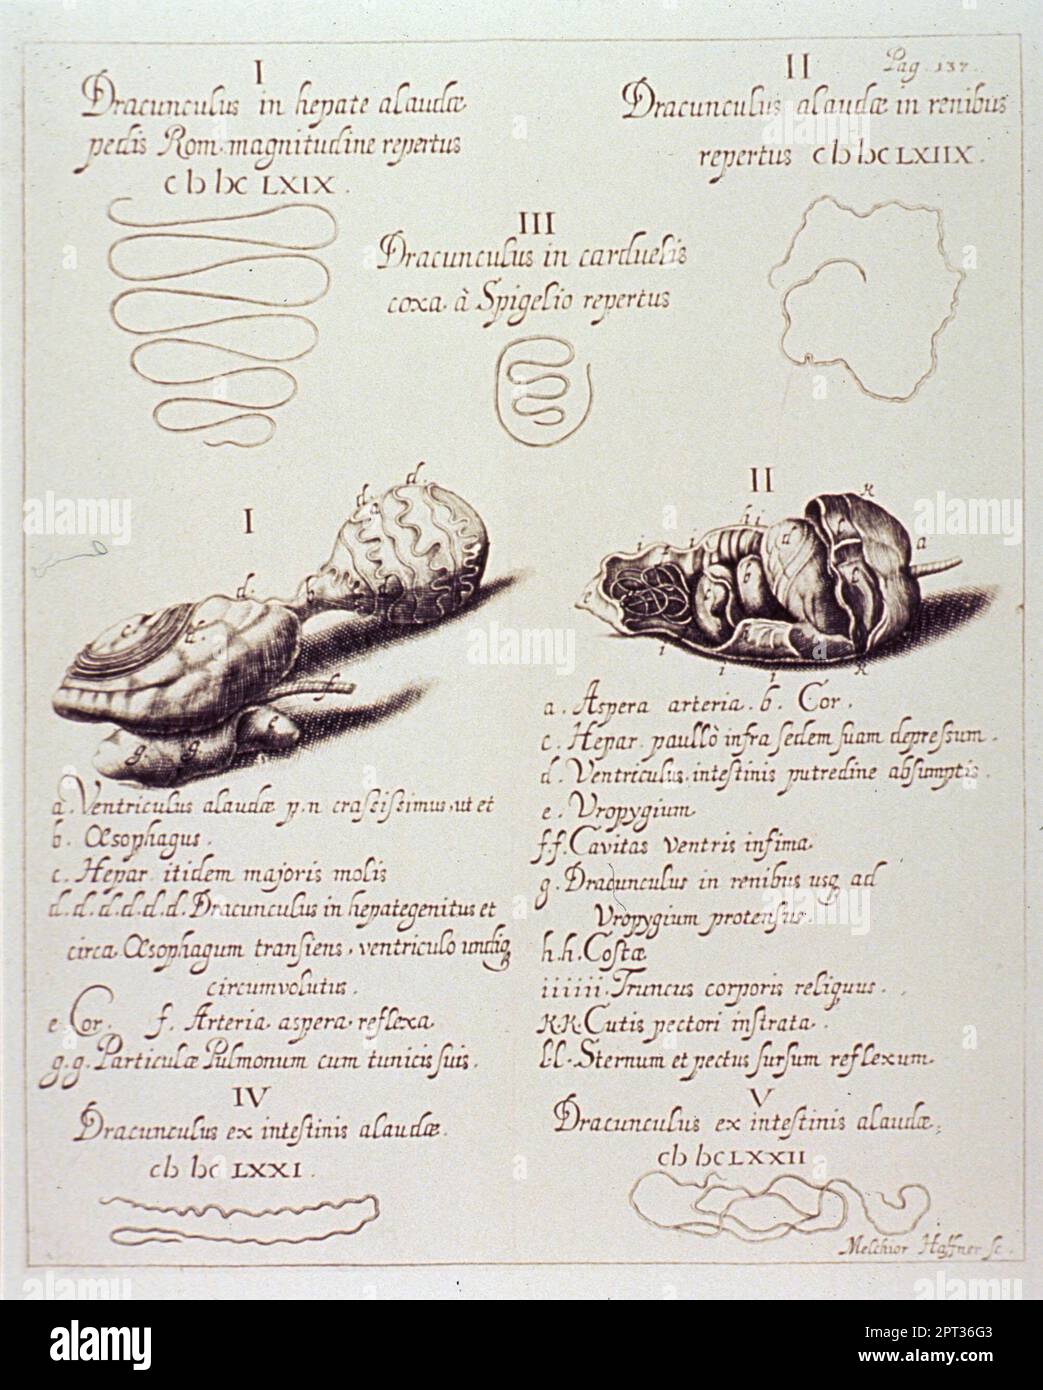 Pag. 137.
I
Dracunculus in hepate alaudæ
pedis Rom. magnitudine repertus
cIɔ Iɔc LXIX.
II
Dracunculus alaudæ in renibus
repertus cIɔ Iɔc LXIIX.
III
Dracunculus in carduelis
coxa. à Spigelio repertus
I
II
a. Ventriculus alaudæ p. n craſsiſsimus, ut et
b. Œsophagus.
c. Hepar itidem majoris molis
d. d. d. d. d. d. Dracunculus in hepate genitus et
circa Œsophagum tranſiens, ventriculo undiq
circumvolutus.
e Cor. f. Arteria aspera reflexa.
g. g. Particulæ Pulmonum cum tunicis ſuis.
a. Aspera arteria. b. Cor.
c. Hepar paullò infra ſedem ſuam depreſsum.
d. Ventriculus intestinis putredine abſumptis.
e. Uropygium
f. f. Cavitas ventris infima.
g. Dracunculus in renibus usq ad
Uropygium protensus.
h. h. Coſtæ
i i i i i i. Truncus corporis reliquus.
K. K. Cutis pectori inſtrata.
l. l. Sternum et pectus ſurſum reflexum.
IV
Dracunculus ex inteſtinis alaudæ.
cIɔ Iɔc LXXI.
V
Dracunculus ex inteſtinis alaudæ,
cIɔ Iɔc LXXII
Melchior Haffner sc.
alamy
Image ID: 2PT36G3
www.alamy.com